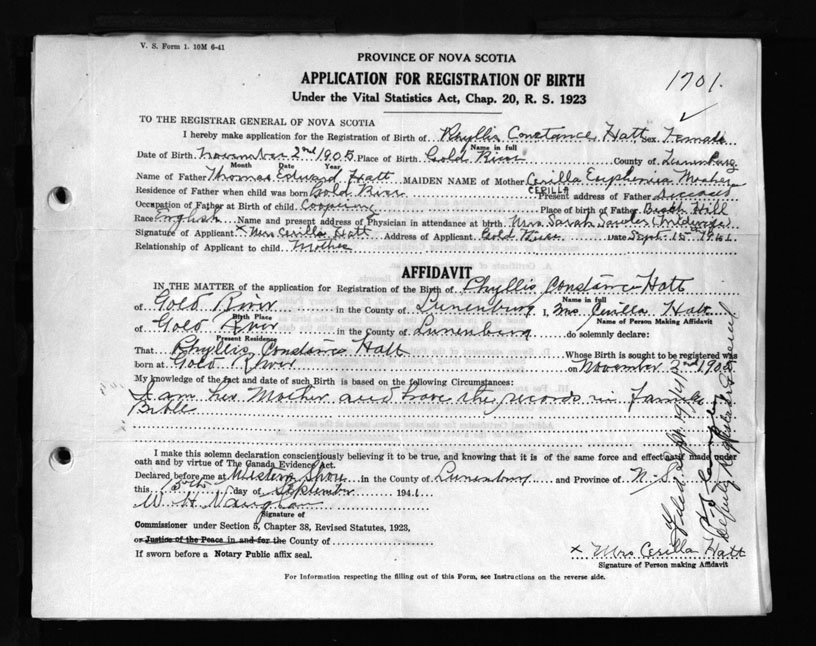 V. S. Form 1. 10M 6-41
PROVINCE OF NOVA SCOTIA
APPLICATION FOR REGISTRATION OF BIRTH
1701.
Under the Vital Statistics Act, Chap. 20, R. S. 1923
TO THE REGISTRAR GENERAL OF NOVA SCOTIA
I hereby make application for the Registration of Birth of Phyllis Constance Hatt Sex Female
Name in full
Date of Birth November 2nd 1905 Place of Birth Gold River County of Lunenburg
Month Date Year
Name of Father Thomas Edward Hatt MAIDEN NAME of Mother Cerilla Euphemia Mosher
CERILLA
Residence of Father when child was born Gold River Present address of Father deceased
Occupation of Father at Birth of child Coopering Place of birth of Father Beech Hill
Race English Name and present address of Physician in attendance at birth Mrs. Sarah (midwife)
Signature of Applicant x Mrs Cerilla Hatt Address of Applicant Gold River Date Sept. 15th 1941
Relationship of Applicant to child Mother
AFFIDAVIT
IN THE MATTER of the application for Registration of the Birth of Phyllis Constance Hatt
Name in full
of Gold River in the County of Lunenburg I, Mrs Cerilla Hatt
Birth Place Name of Person Making Affidavit
of Gold River in the County of Lunenburg do solemnly declare:
Present Residence
That Phyllis Constance Hatt Whose Birth is sought to be registered was
born at Gold River on November 2nd 1905
My knowledge of the fact and date of such Birth is based on the following Circumstances:
I am her Mother and have the records in Family
Bible
I make this solemn declaration conscientiously believing it to be true, and knowing that it is of the same force and effect as if made under
oath and by virtue of The Canada Evidence Act.
Declared before me at Western Shore in the County of Lunenburg and Province of N.S.
this 15th day of September 1941
W. H.
Signature of
Commissioner under Section 5, Chapter 38, Revised Statutes, 1923,
or Justice of the Peace in and for the County of
If sworn before a Notary Public affix seal.
x Mrs Cerilla Hatt
Signature of Person making Affidavit
For Information respecting the filling out of this Form, see Instructions on the reverse side.
Filed Sept. 19/41
Deputy Registrar General